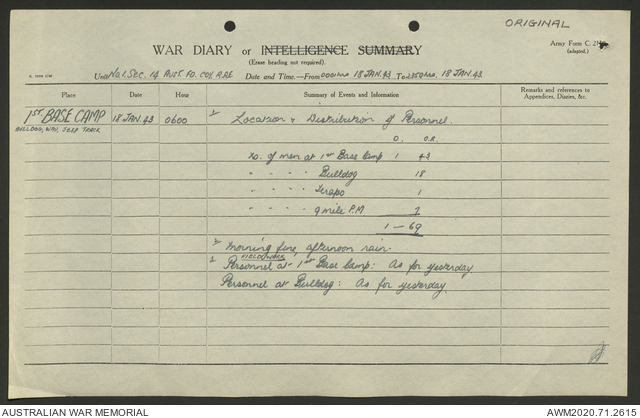 ORIGINAL
WAR DIARY or INTELLIGENCE SUMMARY
(Erase heading not required).
Army Form C.
(adapted.)
Unit No 1. SEC. 14 AUST. FD. COY. RAE Date and Time.—From 0001 hrs 18 JAN. 43 To 2359 hrs. 18 JAN. 43.
Place Date Hour Summary of Events and Information Remarks and references to Appendices, Diaries, &c.
1ST BASE CAMP 18 JAN. 43 0600 1/ Location & Distribution of Personnel.
BULLDOG, WAU, JEEP TRACK
O. O.R.
No. of men at 1st Base Camp 1 43
" " " " Bulldog 18
" " " " Terapo 1
" " " " 9 mile P.M 7
1 — 69
2/ Morning fine, afternoon rain.
FIELD WORK
Personnel at 1st Base Camp: As for yesterday
Personnel at Bulldog: As for yesterday.
AUSTRALIAN WAR MEMORIAL
AWM2020.71.2615